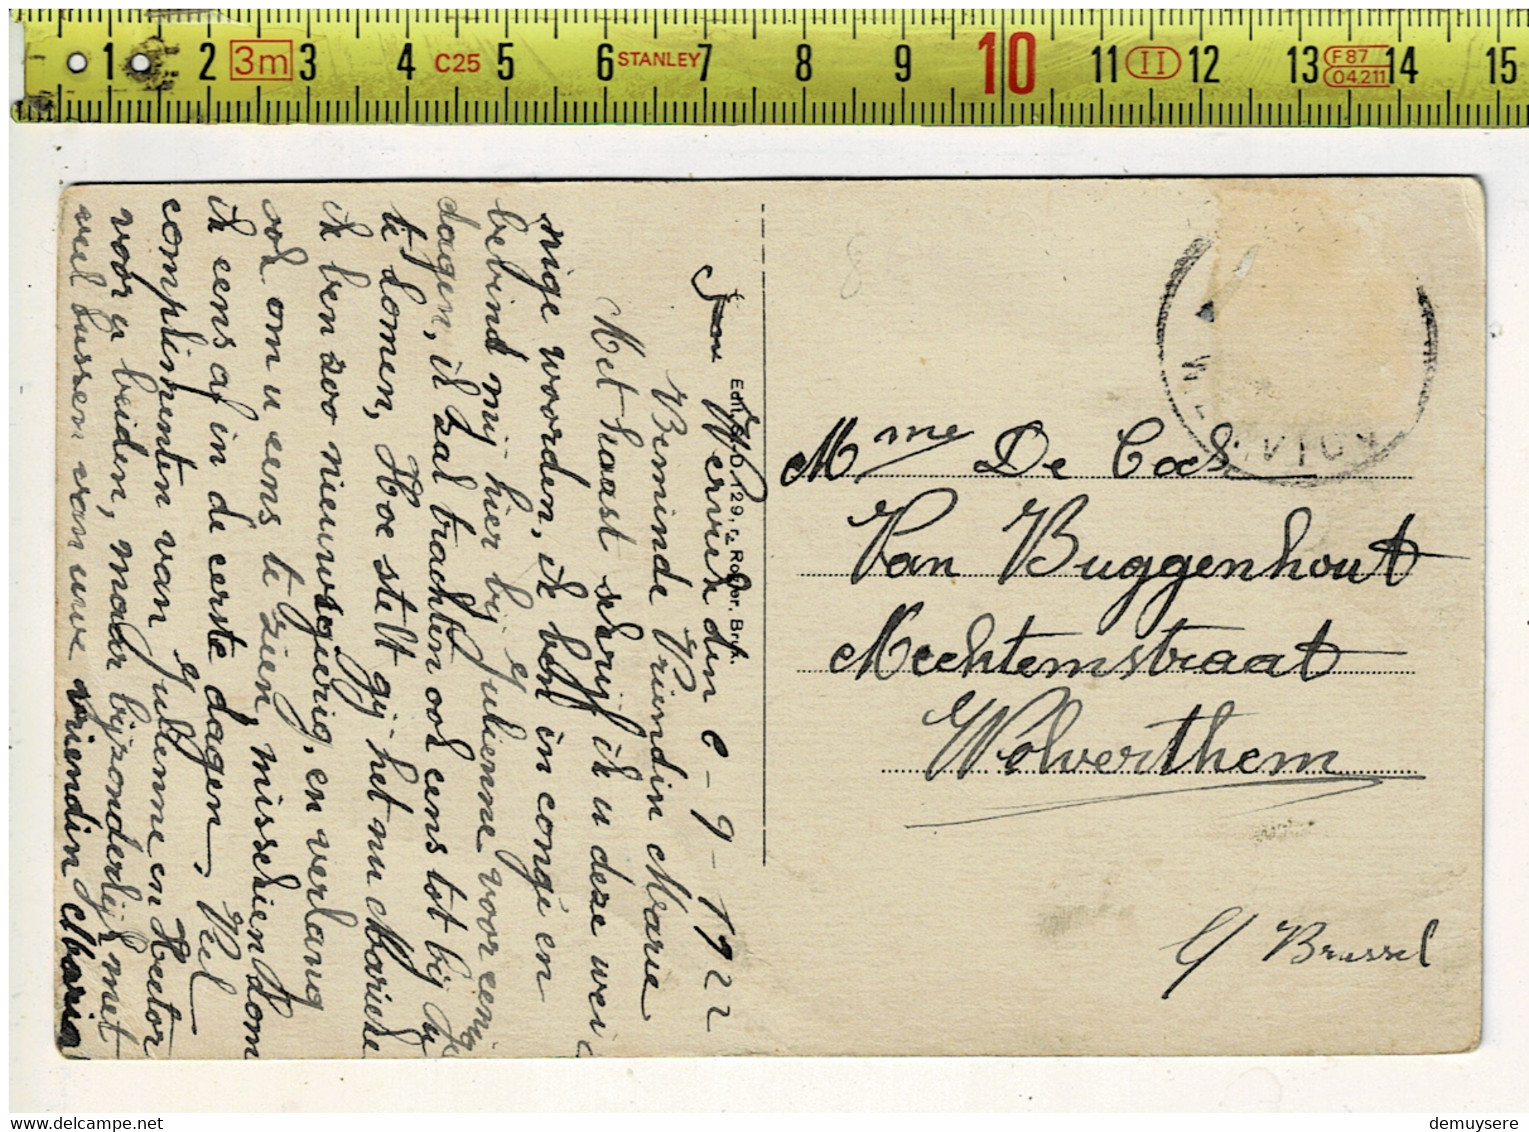 1 2 3m 3 4 C25 5 6 STANLEY 7 8 9 10 11 II 12 13 F87 04.211 14 15
Wervick den 9-1922
Beminde Vriendin Marie
Met haast schrijf ik u deze wei
nige woorden, ik ben in congé en
bebind mij hier bij Julienne voor eenig
dagen, ik zal trachten ook eens tot bij u
te komen, Hoe stelt gij het nu Marieke
ik ben zoo nieuwsgierig, en verlang
ook om u eens te zien, misschien kom
ik eens af in de eerste dagen, Veel
complimenten van Julienne en Hector
voor u beiden, maar bijzonderlijk met
veel kussen van uwe vriendin Maria
Edit. 129, r. Brux.
Mme De Cock
Van Buggenhout
Mechtemstraat
Wolverthem
Brussel
demuysere